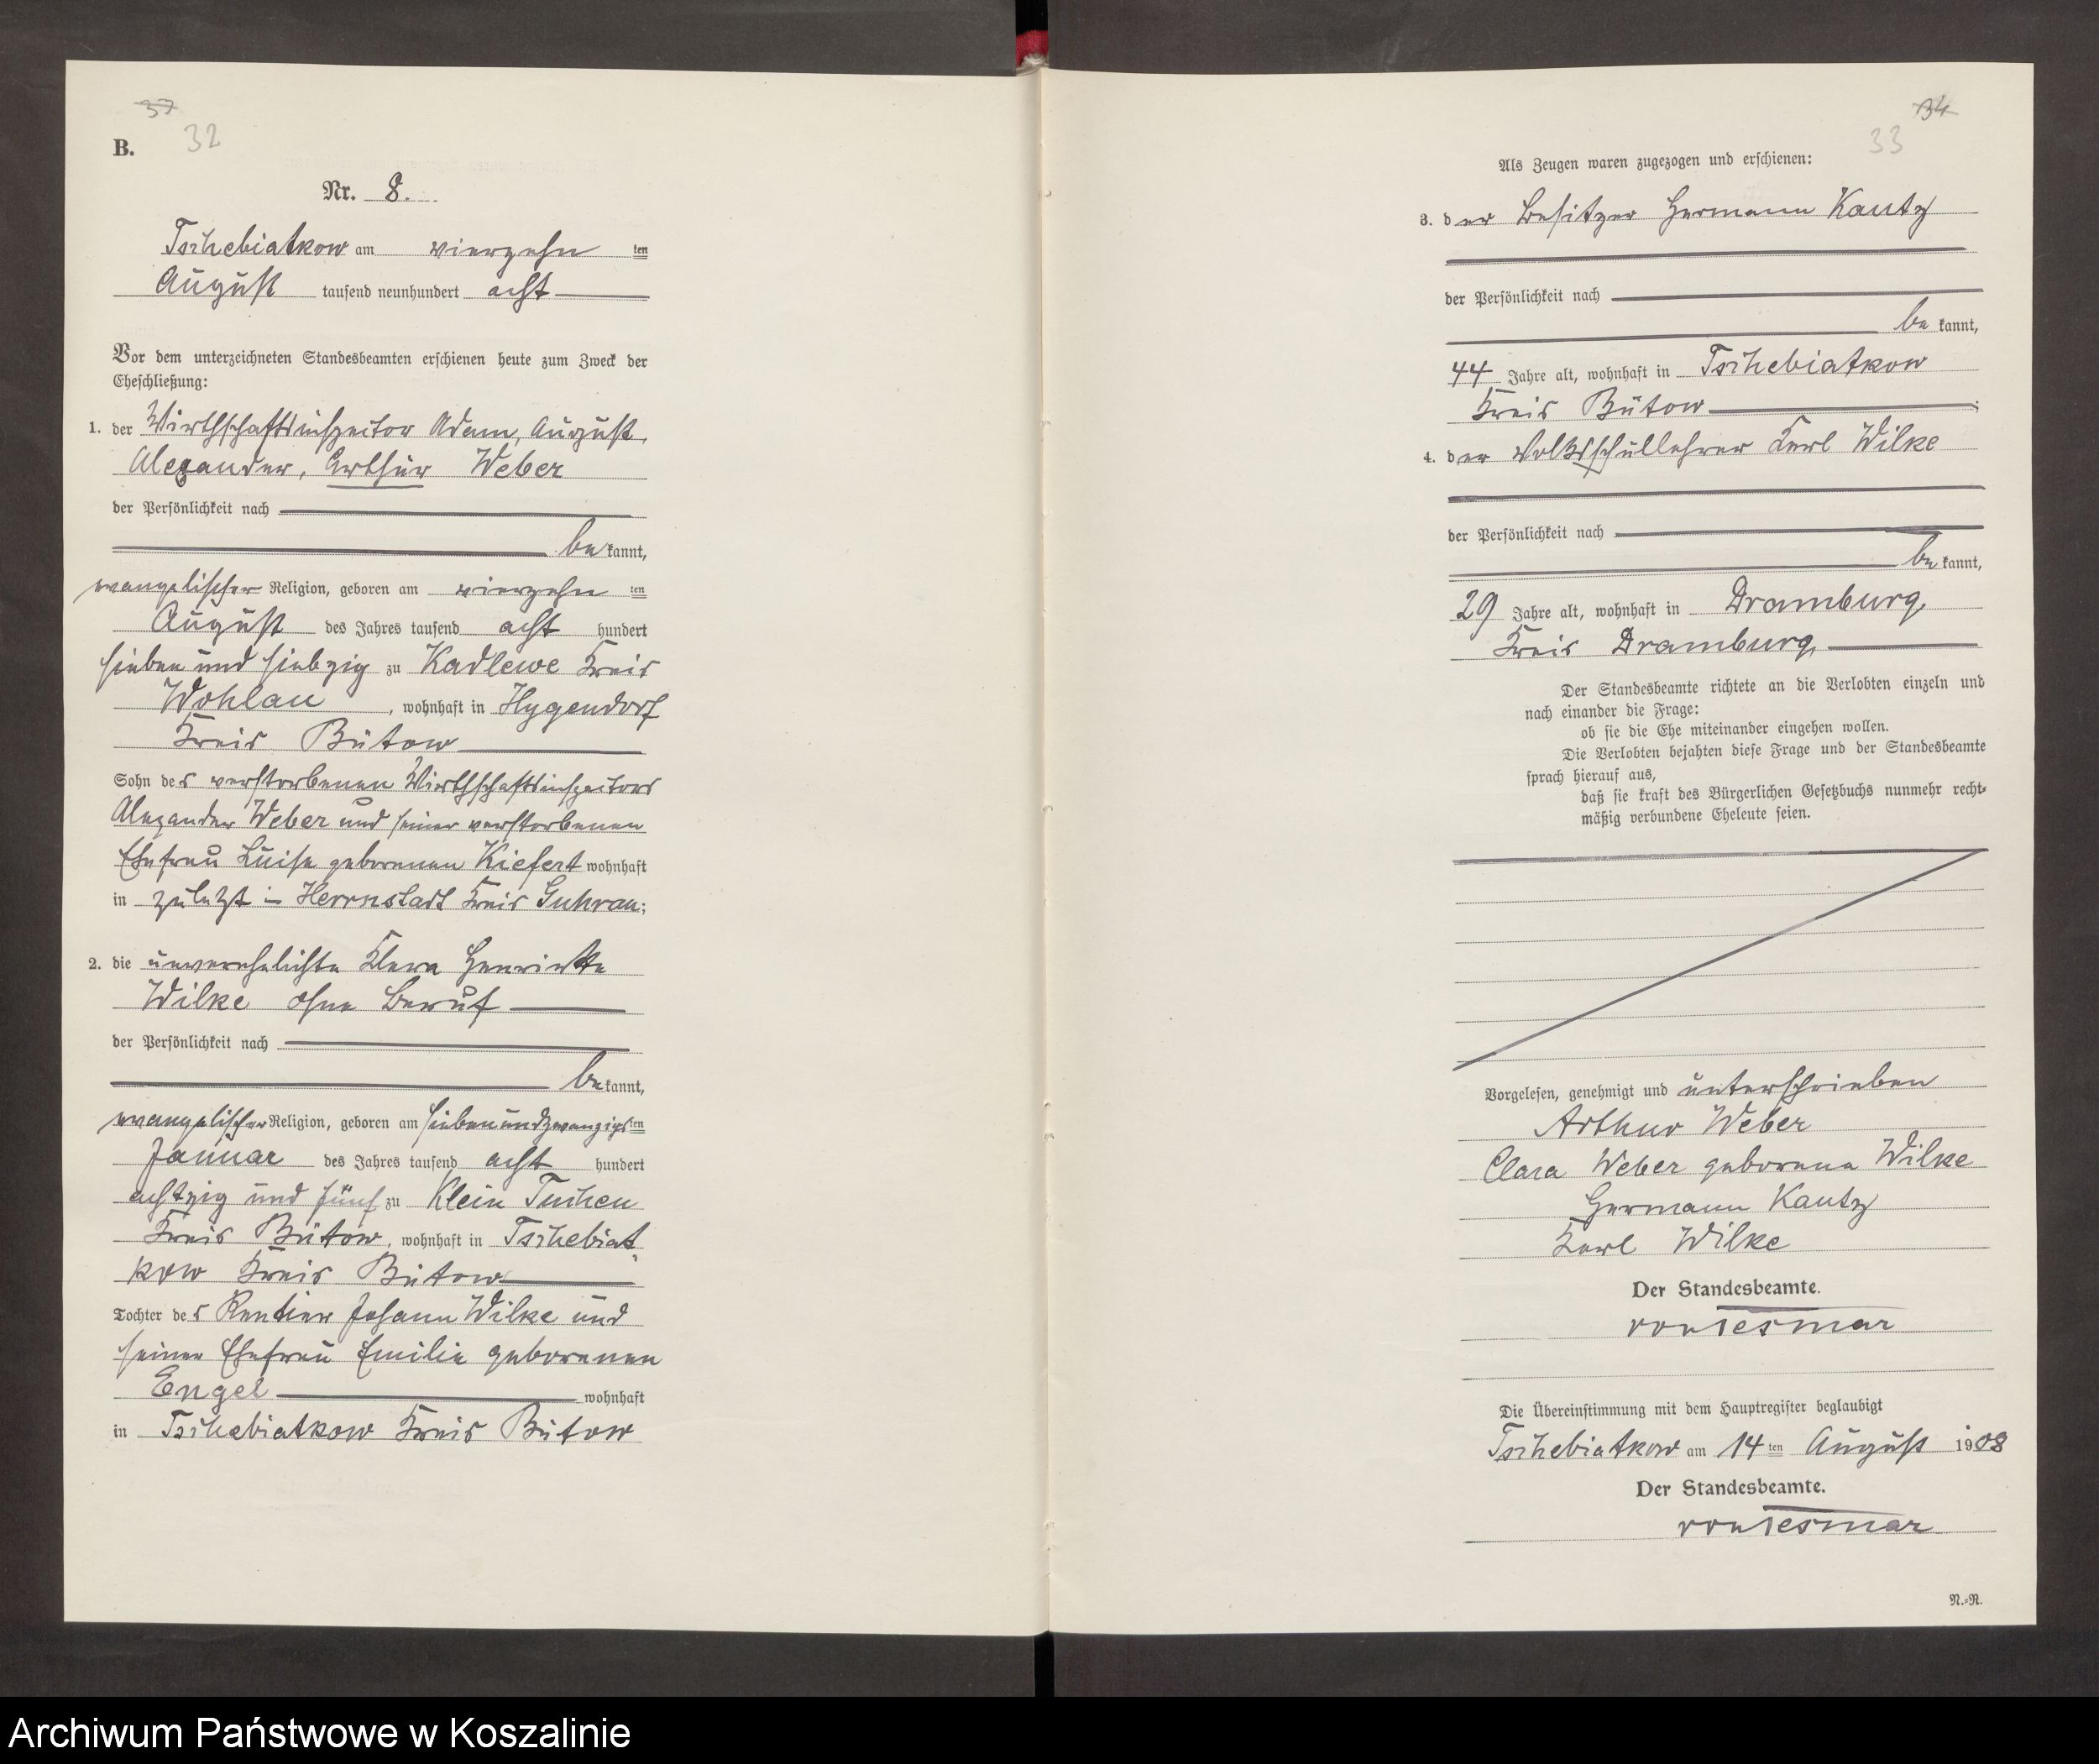 37
32
B.
Nr. 8.
Tschebiatkow am vierzehn ten
August tausend neunhundert acht
Vor dem unterzeichneten Standesbeamten erschienen heute zum Zweck der
Eheschließung:
1. der Wirthschaftsinspector Adam, August,
Alexander, Arthur Weber
der Persönlichkeit nach
be kannt,
evangelischer Religion, geboren am vierzehn ten
August des Jahres tausend acht hundert
sieben und siebzig zu Kadlewe Kreis
Wohlau, wohnhaft in Hygendorf
Kreis Bütow
Sohn des verstorbenen Wirthschaftsinspectors
Alexander Weber und seiner verstorbenen
Ehefrau Luise geborenen Kiefert wohnhaft
in zuletzt in Herrnstadt Kreis Guhrau;
2. die unverehelichte Klara Henriette
Wilke ohne Beruf
der Persönlichkeit nach
be kannt,
evangelischer Religion, geboren am siebenundzwanzigsten
Januar des Jahres tausend acht hundert
achtzig und fünf zu Klein Tuchen
Kreis Bütow, wohnhaft in Tschebiat
kow Kreis Bütow
Tochter des Rentier Johann Wilke und
seiner Ehefrau Emilie geborenen
Engel wohnhaft
in Tschebiatkow Kreis Bütow
34
33
Als Zeugen waren zugezogen und erschienen:
3. der Besitzer Hermann Kautz
der Persönlichkeit nach
be kannt,
44 Jahre alt, wohnhaft in Tschebiatkow
Kreis Bütow;
4. der Volksschullehrer Karl Wilke
der Persönlichkeit nach
be kannt,
29 Jahre alt, wohnhaft in Dramburg,
Kreis Dramburg,
Der Standesbeamte richtete an die Verlobten einzeln und
nach einander die Frage:
ob sie die Ehe miteinander eingehen wollen.
Die Verlobten bejahten diese Frage und der Standesbeamte
sprach hierauf aus,
daß sie kraft des Bürgerlichen Gesetzbuchs nunmehr recht-
mäßig verbundene Eheleute seien.
Vorgelesen, genehmigt und unterschrieben
Arthur Weber
Clara Weber geborene Wilke
Hermann Kautz
Karl Wilke
Der Standesbeamte.
von Tesmar
Die Übereinstimmung mit dem Hauptregister beglaubigt
Tschebiatkow am 14 ten August 1908
Der Standesbeamte.
von Tesmar
N.-R.
Archiwum Państwowe w Koszalinie